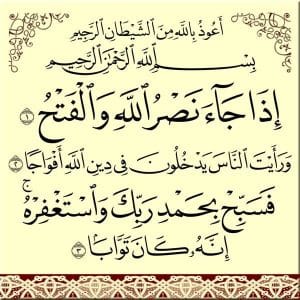 أَعُوذُ بِاللَّهِ مِنَ الشَّيْطَانِ الرَّجِيمِ
بِسْمِ اللَّهِ الرَّحْمَٰنِ الرَّحِيمِ
إِذَا جَآءَ نَصْرُ ٱللَّهِ وَٱلْفَتْحُ ١
وَرَأَيْتَ ٱلنَّاسَ يَدْخُلُونَ فِى دِينِ ٱللَّهِ أَفْوَاجًا ٢
فَسَبِّحْ بِحَمْدِ رَبِّكَ وَٱسْتَغْفِرْهُ ۚ
إِنَّهُۥ كَانَ تَوَّابًۢا ٣